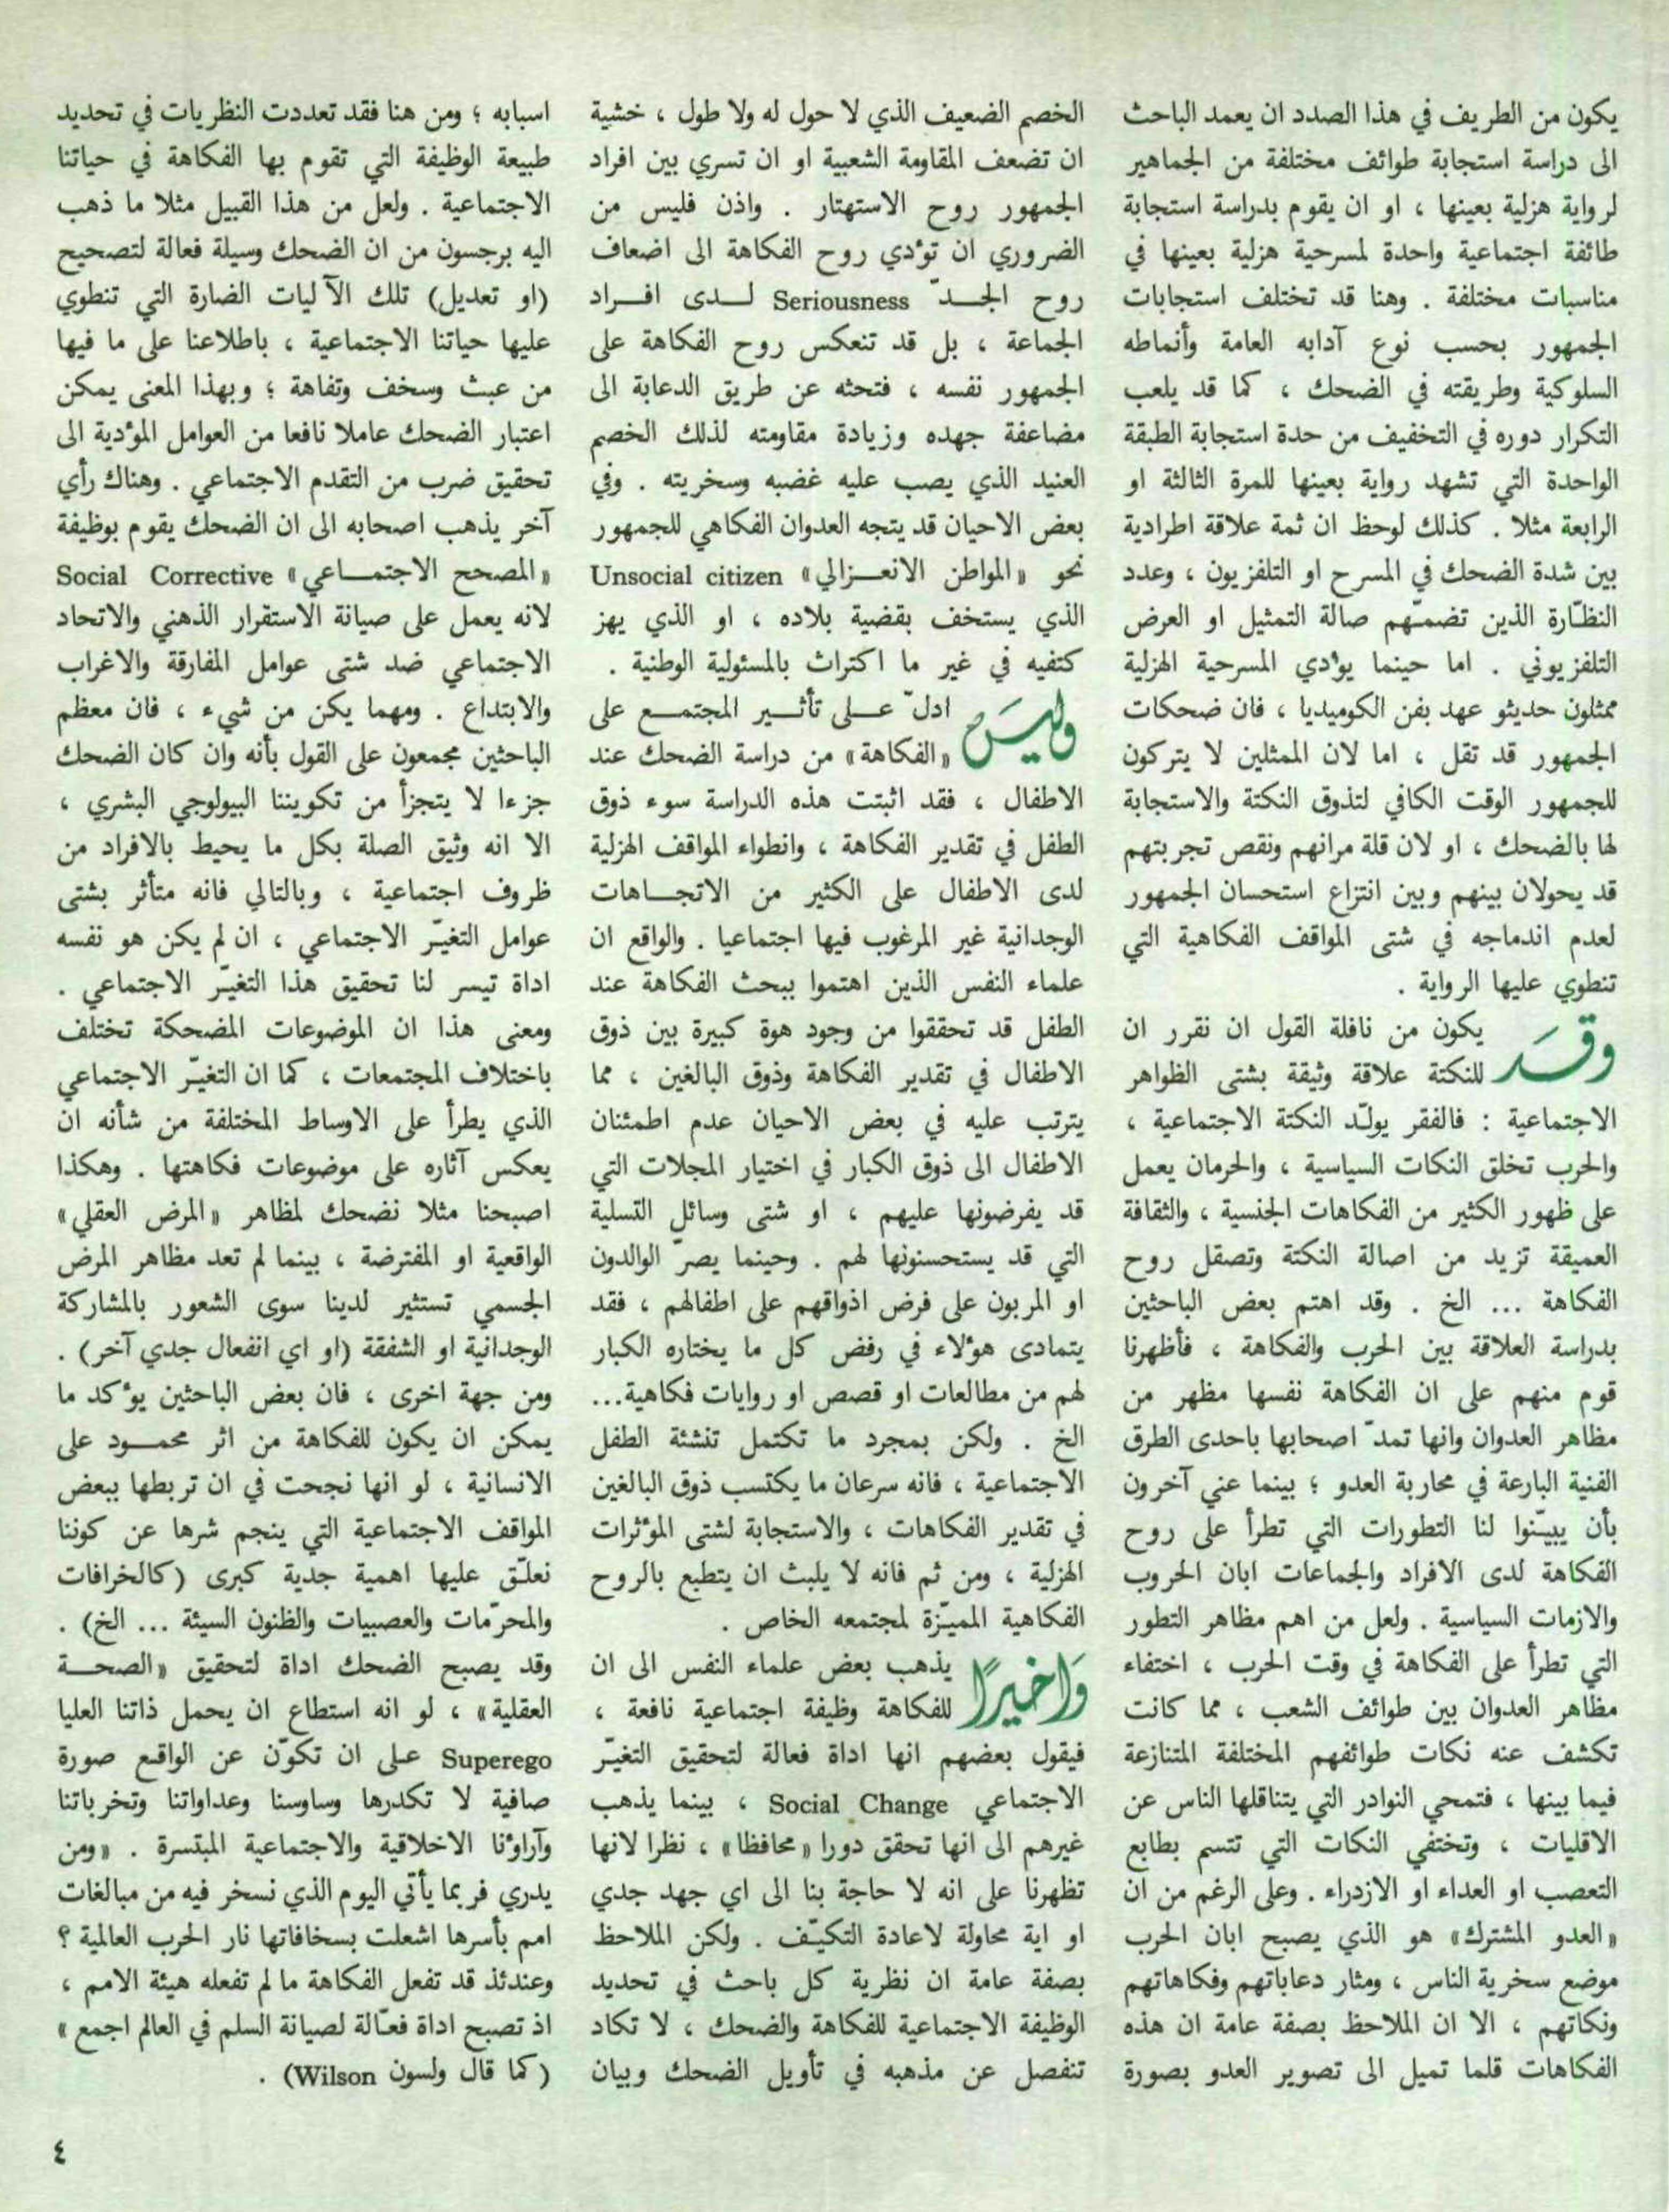 يكون من الطريف في هذا الصدد ان يعمد الباحث
الى دراسة استجابة طوائف مختلفة من الجماهير
لرواية هزلية بعينها ، او ان يقوم بدراسة استجابة
طائفة اجتماعية واحدة لمسرحية هزلية بعينها في
مناسبات مختلفة . وهنا قد تختلف استجابات
الجمهور بحسب نوع آدابه العامة وأنماطه
السلوكية وطريقته في الضحك ، كما قد يلعب
التكرار دوره في التخفيف من حدة استجابة الطبقة
الواحدة التي تشهد رواية بعينها للمرة الثالثة او
الرابعة مثلا . كذلك لوحظ ان ثمة علاقة اطرادية
بين شدة الضحك في المسرح او التلفزيون ، وعدد
النظّارة الذين تضمّهم صالة التمثيل او العرض
التلفزيوني . اما حينما يؤدي المسرحية الهزلية
ممثلون حديثو عهد بفن الكوميديا ، فان ضحكات
الجمهور قد تقل ، اما لان الممثلين لا يتركون
للجمهور الوقت الكافي لتذوق النكتة والاستجابة
لها بالضحك ، او لان قلة مرانهم ونقص تجربتهم
قد يحولان بينهم وبين انتزاع استحسان الجمهور
لعدم اندماجه في شتى المواقف الفكاهية التي
تنطوي عليها الرواية .
وقَد يكون من نافلة القول ان نقرر ان
للنكتة علاقة وثيقة بشتى الظواهر
الاجتماعية : فالفقر يولّد النكتة الاجتماعية ،
والحرب تخلق النكات السياسية ، والحرمان يعمل
على ظهور الكثير من الفكاهات الجنسية ، والثقافة
العميقة تزيد من اصالة النكتة وتصقل روح
الفكاهة ... الخ . وقد اهتم بعض الباحثين
بدراسة العلاقة بين الحرب والفكاهة ، فأظهرنا
قوم منهم على ان الفكاهة نفسها مظهر من
مظاهر العدوان وانها تمدّ اصحابها باحدى الطرق
الفنية البارعة في محاربة العدو ؛ بينما عني آخرون
بأن يبيّنوا لنا التطورات التي تطرأ على روح
الفكاهة لدى الافراد والجماعات ابان الحروب
والازمات السياسية . ولعل من اهم مظاهر التطور
التي تطرأ على الفكاهة في وقت الحرب ، اختفاء
مظاهر العدوان بين طوائف الشعب ، مما كانت
تكشف عنه نكات طوائفهم المختلفة المتنازعة
فيما بينها ، فتمحي النوادر التي يتناقلها الناس عن
الاقليات ، وتختفي النكات التي تتسم بطابع
التعصب او العداء او الازدراء . وعلى الرغم من ان
«العدو المشترك» هو الذي يصبح ابان الحرب
موضع سخرية الناس ، ومثار دعاباتهم وفكاهاتهم
ونكاتهم ، الا ان الملاحظ بصفة عامة ان هذه
الفكاهات قلما تميل الى تصوير العدو بصورة
الخصم الضعيف الذي لا حول له ولا طول ، خشية
ان تضعف المقاومة الشعبية او ان تسري بين افراد
الجمهور روح الاستهتار . واذن فليس من
الضروري ان تؤدي روح الفكاهة الى اضعاف
روح الجــدّ Seriousness لــدى افــراد
الجماعة ، بل قد تنعكس روح الفكاهة على
الجمهور نفسه ، فتحثه عن طريق الدعابة الى
مضاعفة جهده وزيادة مقاومته لذلك الخصم
العنيد الذي يصب عليه غضبه وسخريته . وفي
بعض الاحيان قد يتجه العدوان الفكاهي للجمهور
نحو «المواطن الانعــزالي» Unsocial citizen
الذي يستخف بقضية بلاده ، او الذي يهز
كتفيه في غير ما اكتراث بالمسئولية الوطنية .
وليَسَ ادلّ عــلى تأثــير المجتمــع على
«الفكاهة» من دراسة الضحك عند
الاطفال ، فقد اثبتت هذه الدراسة سوء ذوق
الطفل في تقدير الفكاهة ، وانطواء المواقف الهزلية
لدى الاطفال على الكثير من الاتجــاهات
الوجدانية غير المرغوب فيها اجتماعيا . والواقع ان
علماء النفس الذين اهتموا ببحث الفكاهة عند
الطفل قد تحققوا من وجود هوة كبيرة بين ذوق
الاطفال في تقدير الفكاهة وذوق البالغين ، مما
يترتب عليه في بعض الاحيان عدم اطمئنان
الاطفال الى ذوق الكبار في اختيار المجلات التي
قد يفرضونها عليهم ، او شتى وسائل التسلية
التي قد يستحسنونها لهم . وحينما يصرّ الوالدون
او المربون على فرض اذواقهم على اطفالهم ، فقد
يتمادى هؤلاء في رفض كل ما يختاره الكبار
لهم من مطالعات او قصص او روايات فكاهية...
الخ . ولكن بمجرد ما تكتمل تنشئة الطفل
الاجتماعية ، فانه سرعان ما يكتسب ذوق البالغين
في تقدير الفكاهات ، والاستجابة لشتى المؤثرات
الهزلية ، ومن ثم فانه لا يلبث ان يتطبع بالروح
الفكاهية المميّزة لمجتمعه الخاص .
وَاخيرًا يذهب بعض علماء النفس الى ان
للفكاهة وظيفة اجتماعية نافعة ،
فيقول بعضهم انها اداة فعالة لتحقيق التغيّر
الاجتماعي Social Change ، بينما يذهب
غيرهم الى انها تحقق دورا «محافظا» ، نظرا لانها
تظهرنا على انه لا حاجة بنا الى اي جهد جدي
او اية محاولة لاعادة التكيّف . ولكن الملاحظ
بصفة عامة ان نظرية كل باحث في تحديد
الوظيفة الاجتماعية للفكاهة والضحك ، لا تكاد
تنفصل عن مذهبه في تأويل الضحك وبيان
اسبابه ؛ ومن هنا فقد تعددت النظريات في تحديد
طبيعة الوظيفة التي تقوم بها الفكاهة في حياتنا
الاجتماعية . ولعل من هذا القبيل مثلا ما ذهب
اليه برجسون من ان الضحك وسيلة فعالة لتصحيح
(او تعديل) تلك الآليات الضارة التي تنطوي
عليها حياتنا الاجتماعية ، باطلاعنا على ما فيها
من عبث وسخف وتفاهة ؛ وبهذا المعنى يمكن
اعتبار الضحك عاملا نافعا من العوامل المؤدية الى
تحقيق ضرب من التقدم الاجتماعي . وهناك رأي
آخر يذهب اصحابه الى ان الضحك يقوم بوظيفة
«المصحح الاجتمــاعي» Social Corrective
لانه يعمل على صيانة الاستقرار الذهني والاتحاد
الاجتماعي ضد شتى عوامل المفارقة والاغراب
والابتداع . ومهما يكن من شيء ، فان معظم
الباحثين مجمعون على القول بأنه وان كان الضحك
جزءا لا يتجزأ من تكويننا البيولوجي البشري ،
الا انه وثيق الصلة بكل ما يحيط بالافراد من
ظروف اجتماعية ، وبالتالي فانه متأثر بشتى
عوامل التغيّر الاجتماعي ، ان لم يكن هو نفسه
اداة تيسر لنا تحقيق هذا التغيّر الاجتماعي .
ومعنى هذا ان الموضوعات المضحكة تختلف
باختلاف المجتمعات ، كما ان التغيّر الاجتماعي
الذي يطرأ على الاوساط المختلفة من شأنه ان
يعكس آثاره على موضوعات فكاهتها . وهكذا
اصبحنا مثلا نضحك لمظاهر «المرض العقلي»
الواقعية او المفترضة ، بينما لم تعد مظاهر المرض
الجسمي تستثير لدينا سوى الشعور بالمشاركة
الوجدانية او الشفقة (او اي انفعال جدي آخر) .
ومن جهة اخرى ، فان بعض الباحثين يؤكد ما
يمكن ان يكون للفكاهة من اثر محمــود على
الانسانية ، لو انها نجحت في ان تربطها ببعض
المواقف الاجتماعية التي ينجم شرها عن كوننا
نعلّق عليها اهمية جدية كبرى (كالخرافات
والمحرّمات والعصبيات والظنون السيئة ... الخ) .
وقد يصبح الضحك اداة لتحقيق «الصحــة
العقلية» ، لو انه استطاع ان يحمل ذاتنا العليا
Superego عــلى ان تكوّن عن الواقع صورة
صافية لا تكدرها وساوسنا وعداواتنا وتخرباتنا
وآراؤنا الاخلاقية والاجتماعية المبتسرة . «ومن
يدري فربما يأتي اليوم الذي نسخر فيه من مبالغات
امم بأسرها اشعلت بسخافاتها نار الحرب العالمية ؟
وعندئذ قد تفعل الفكاهة ما لم تفعله هيئة الامم ،
اذ تصبح اداة فعّالة لصيانة السلم في العالم اجمع»
(كما قال ولسون Wilson) .
٤